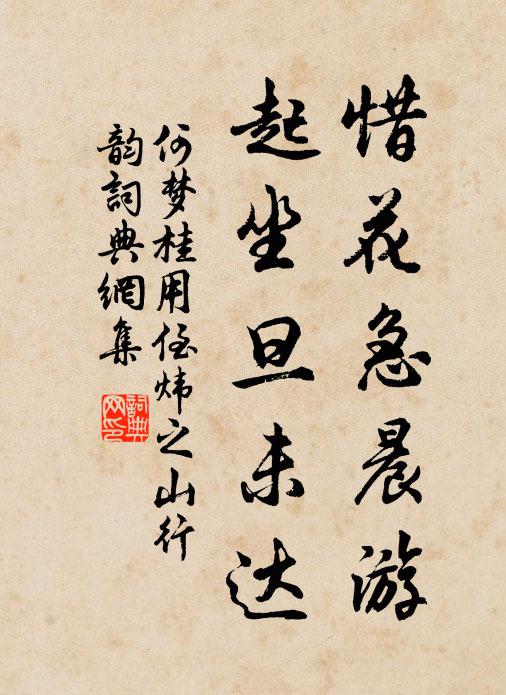 惜花急晨游
起坐旦未达
何梦桂用侄炜之山行
韵詞典網集
詞典
网印